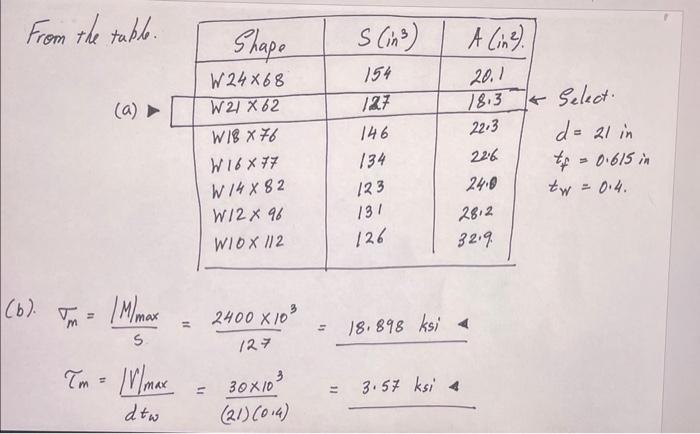 From the table.
Shape S (in³) A (in²).
W24×68 154 20.1
(a) ▶ W21×62 127 18.3 ← Select.
W18×76 146 22.3 d = 21 in
W16×77 134 22.6 tf = 0.615 in
W14×82 123 24.0 tw = 0.4.
W12×96 131 28.2
W10×112 126 32.9
(b). σm = |M|max / S = 2400×10³ / 127 = 18.898 ksi ◀
τm = |V|max / dtw = 30×10³ / (21)(0.4) = 3.57 ksi ◀